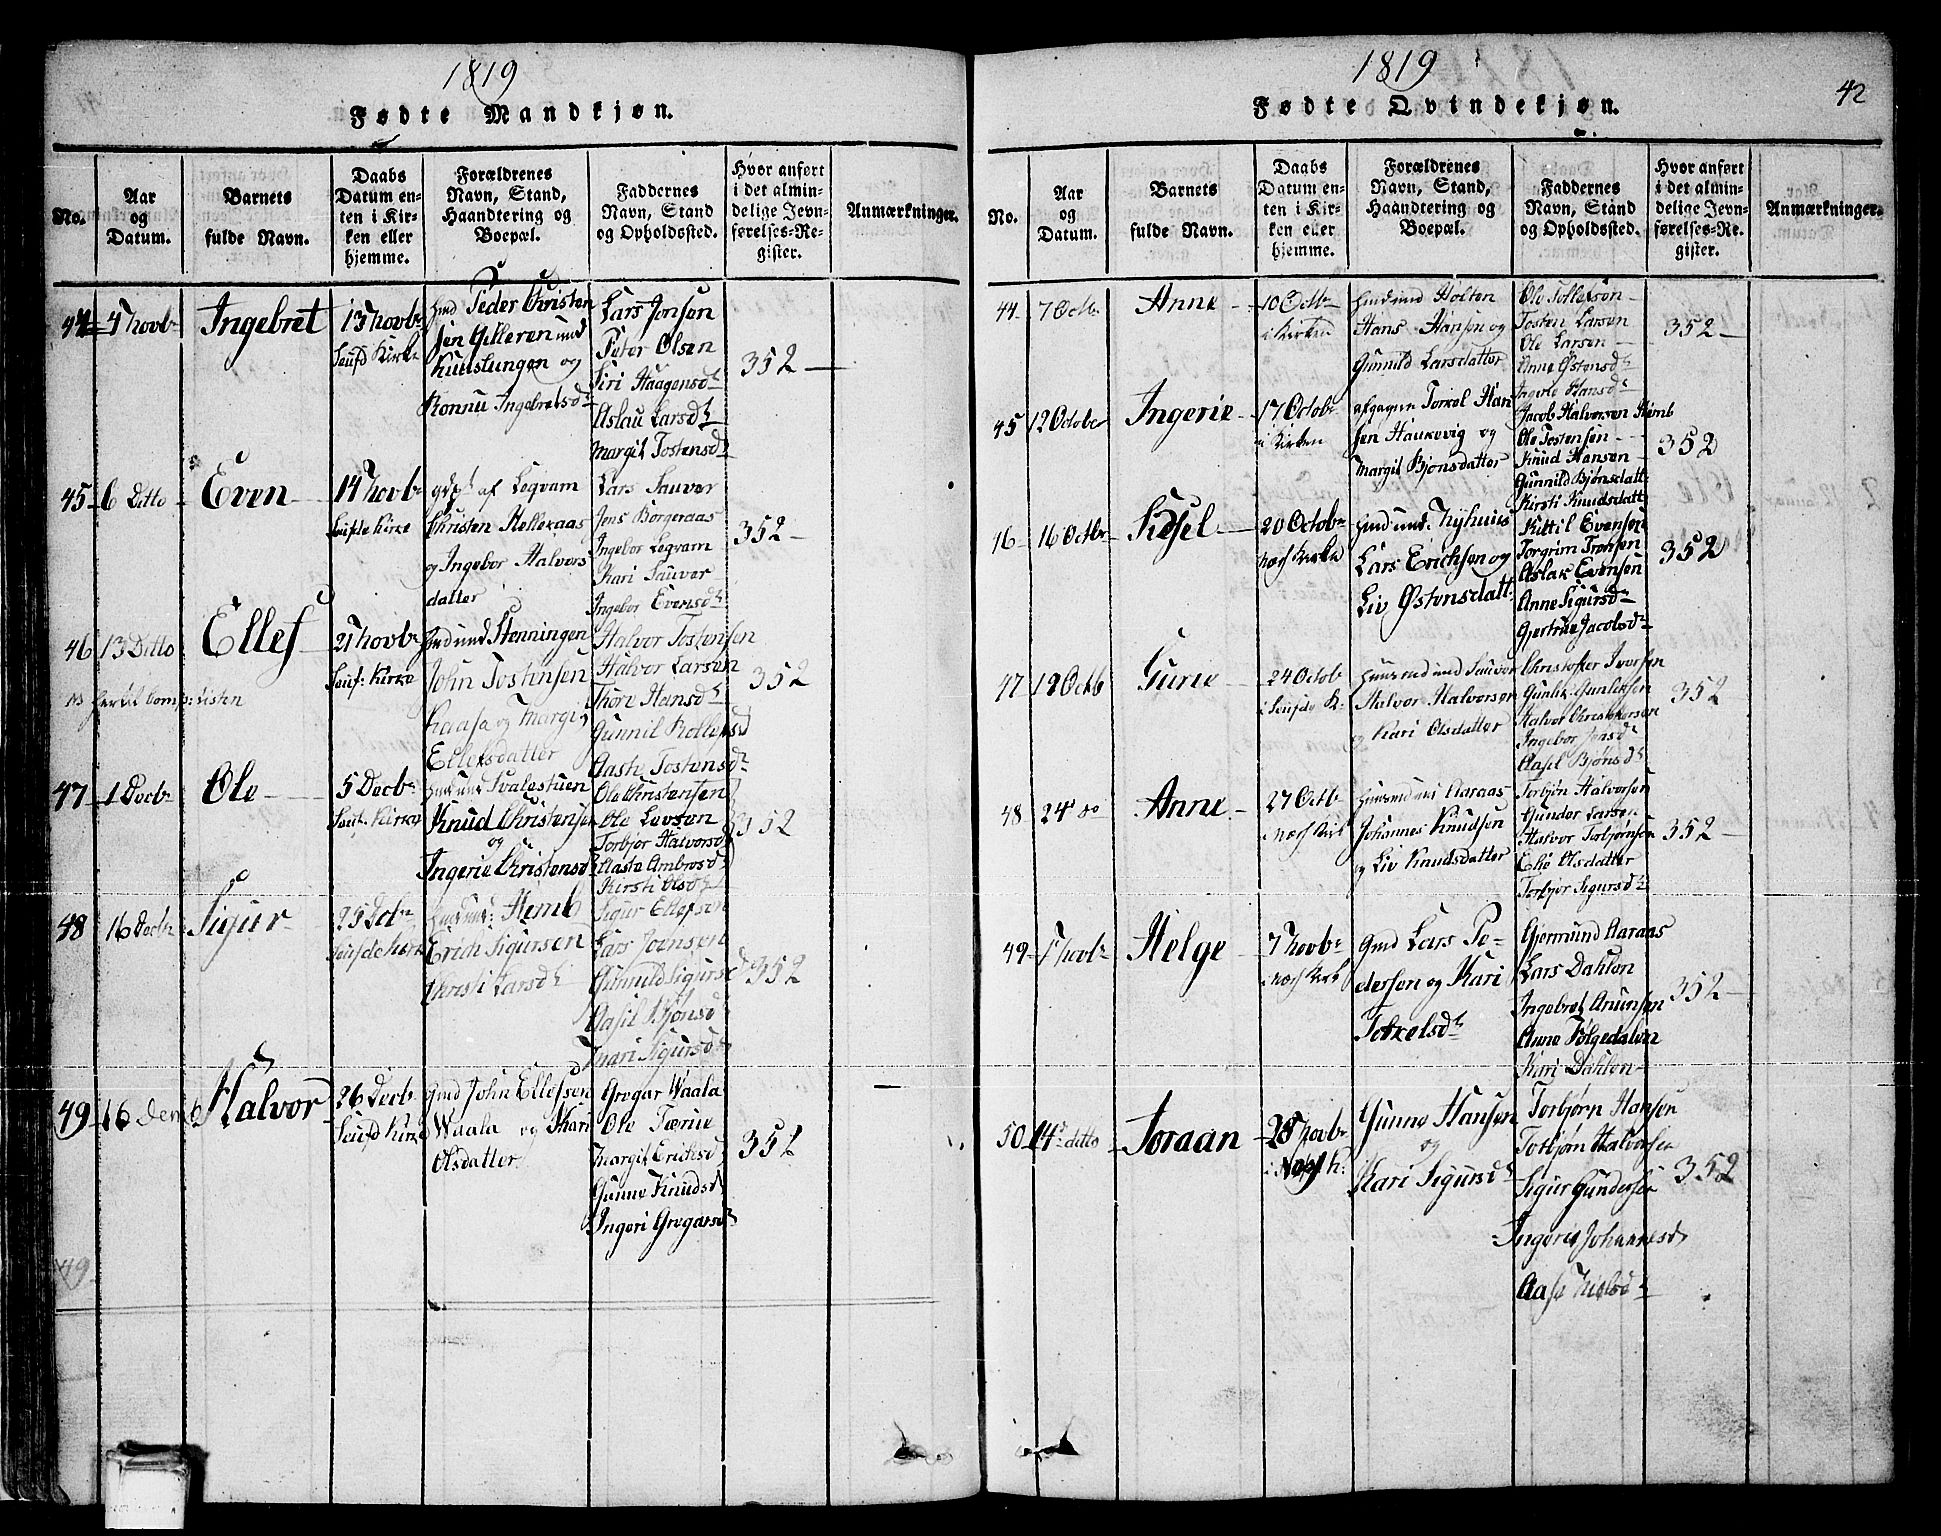 1819
Fødte Mandkjøn.
No.
Aar
og
Datum.
Barnets
fulde Navn.
Daabs
Datum en-
ten i Kir-
ken eller
hjemme.
Forældrenes
Navn, Stand,
Haandtering og
Boepæl.
Faddernes
Navn, Stand
og Opholdssted.
Hvor anført
i det almin-
delige Jevn-
førelses-Re-
gister.
Anmærkninger.
44
4 Novb
Ingebret
13 Novb
Kirke
Peder Christen
sen
og
Ronnu Ingebretsd
Lars Jonsen
Peter Olsen
Siri Haagensd
Aslau Larsd
Margit Tostensd
352
45
6 Ditto
Even
14 Novb
Kirke
af Legvam
Christen Helleraas
og Ingebor Halvors
datter
Lars Sauver
Jens Borgeraas
Ingebor Legvam
Kari Sauver
Ingebor Evensd
352
46
13 Ditto
Ellef
21 Novb
Kirke
Stenningen
John Tostensen
Kaasa og Margi
Ellefsdatter
Halvor Tostensen
Halvor Larsen
Thore Hansd
Gunnil Rollefsd
Aaste Tostensd
352
47
1 Decb
Ole
5 Decb
Kirke
Svalestuen
Knud Christensen
og
Ingerie Christensd
Ole Christensen
Ole Levsen
Torbjør Halvorsd
Aaste Ambrosd
Kirsti Olsd
352
48
16 Decb
Sigur
25 Dcb
Hemb
Erich Sigursen
Christi Larsd
Sigur Ellefsen
Lars Joensen
Gunnild Sigursd
Aasil Bjønsd
Kari Sigursd
352
49
16 Decmb
Halvor
26 Decb
Gmd John Ellefsen
Waala og Kari
Olsdatter
Gregar Waala
Ole Tærue
Margit Erichsd
Gunne Knudsd
Ingeri Gregarsd
352
49
1819
42
Fødte Qvindekjøn.
No.
Aar
og
Datum.
Barnets
fulde Navn.
Daabs
Datum en-
ten i Kir-
ken eller
hjemme.
Forældrenes
Navn, Stand,
Haandtering og
Boepæl.
Faddernes
Navn, Stand
og Opholdssted.
Hvor anført
i det almin-
delige Jevn-
førelses-Re-
gister.
Anmærkninger.
44
7 Octb
Anne
10 Octb
i Kirken
Holten
Hans Hansen og
Gunnild Larsdatter
Ole Tollefsøn
Tosten Larsen
Ole Larsen
Anne Østensd
Ingerle Hansd
352
45
12 Octobr
Ingerie
17 Octob
i Kirken
Torkel Han
sen Haukevig og
Margit Bjønsdatter
Jacob Halvorsen Hemb
Ole Tostensen
Knud Hansen
Gunnild Bjønsdatt
Kirsti Knudsdatt
352
16
16 Octbr
Sidsel
20 Octob
Kirke
Nyhuus
Lars Erichsen og
Liv Østensdatt
Kittil Evensen
Torgrim Tronsen
Aslak Evensen
Anne Sigursd
Gjertrue Jacobsd
352
47
18 Octb
Gurie
24 Octob
Sauver
Halvor Halvorsen
og Kari Olsdatter
Christoffer Iversen
Gunlek Gunleksen
Halvor Christophersen
Ingebor Jensd
Aasel Bjønsd
352
48
24 do
Anne
27 Octb
Aaraas
Johannes Knudsen
og Liv Knudsdatter
Torbjøn Halvorsen
Gunder Larsen
Halvor Torbjørnsen
Olsdatter
Torbjør Sigursd
352
49
1 Novb
Helge
7 Novb
Gmd Lars Pe-
dersen og Kari
Torkelsd
Gjermund Aaraas
Lars Dahlen
Ingebret Anunsen
Anne Følgedalen
Kari Dahlen
352
50
14 ditto
Joraan
28 Novb
Gunne Hansen
og
Kari Sigursd
Torbjørn Hansen
Torbjøn Halvorsen
Sigur Gundersen
Ingerie Johannesd
Aase Nielsd
352